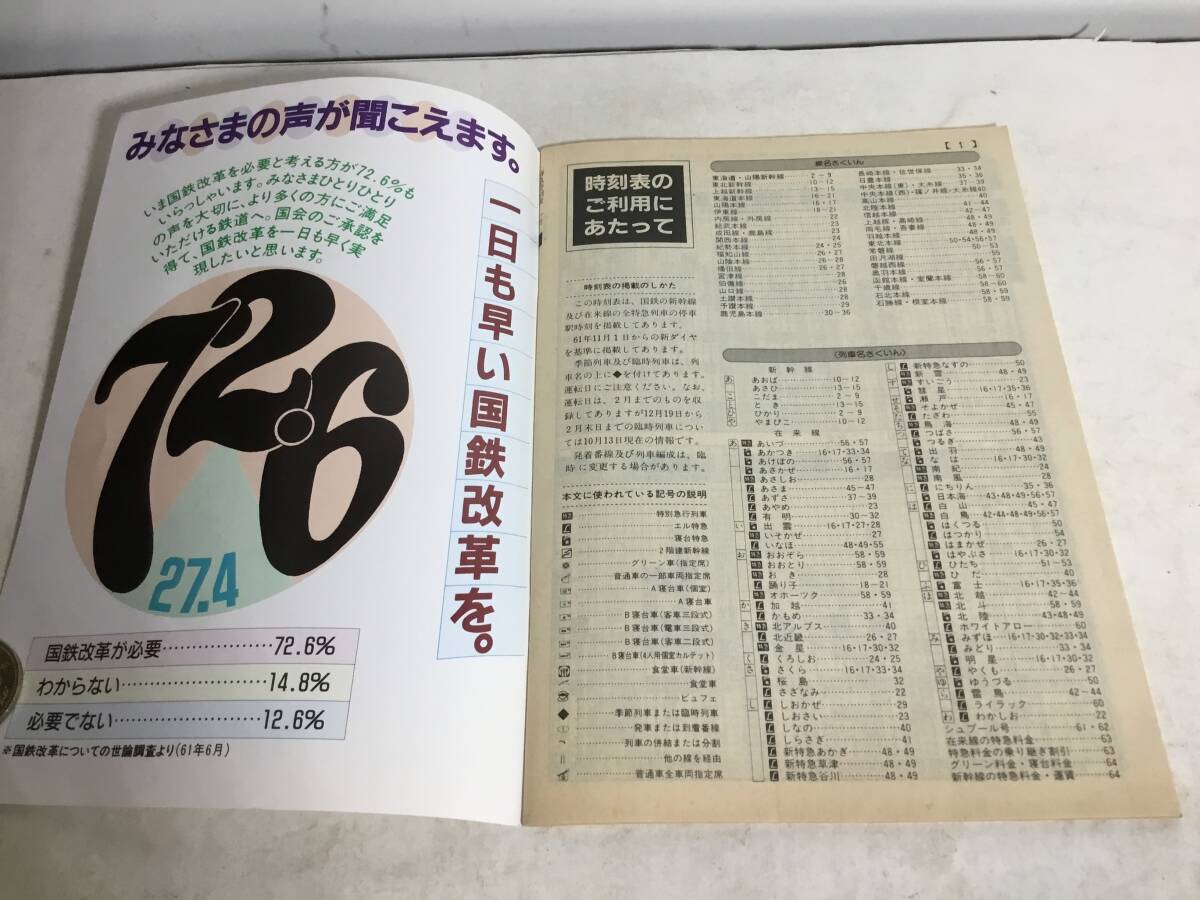 みなさまの声が聞こえます。
いま国鉄改革を必要と考える方が72.6%も
いらっしゃいます。みなさまひとりひとり
の声を大切に、より多くの方にご満足
いただける鉄道へ。国会のご承認を
得て、国鉄改革を一日も早く実
現したいと思います。
一日も早い国鉄改革を。
72.6
27.4
国鉄改革が必要………………72.6%
わからない………………14.8%
必要でない………………12.6%
※国鉄改革についての世論調査より(61年6月)
【1】
時刻表の
ご利用に
あたって
時刻表の掲載のしかた
この時刻表は、国鉄の新幹線
及び在来線の全特急列車の停車
駅時刻を掲載してあります。
61年11月1日からの新ダイヤ
を基準に掲載してあります。
季節列車及び臨時列車は、列
車名の上に◆を付けてあります。
運転日にご注意ください。なお、
運転日は、2月までのものを収
録してありますが12月19日から
2月末日までの臨時列車につい
ては10月13日現在の情報です。
発着番線及び列車編成は、臨
時に変更する場合があります。
本文に使われている記号の説明
特別急行列車
エル特急
寝台特急
2階建新幹線
グリーン車(指定席)
普通車の一部車両指定席
A寝台車(個室)
A寝台車
B寝台車(客車三段式)
B寝台車(電車三段式)
B寝台車(客車二段式)
B寝台車(4人用個室カルテット)
食堂車(新幹線)
食堂車
ビュフェ
◆ 季節列車または臨時列車
発車または到着番線
列車の併結または分割
他の線を経由
普通車全車両指定席
線名さくいん
東海道・山陽新幹線 2-9
東北新幹線 10-12
上越新幹線 13-15
東海道本線 16・17
山陽本線 16・17
伊東線 18-21
内房線・外房線 22
総武本線 22
成田線・鹿島線 23
関西本線 24
紀勢本線 24・25
福知山線 26・27
山陰本線 26-28
播但線 26・27
宮津線 28
伯備線 28
山口線 28
土讃本線 28
予讃本線 29
鹿児島本線 30-36
長崎本線・佐世保線 33・34
日豊本線 35・36
中央本線(東)・大糸線 37-39
中央本線(西)・篠ノ井線・大糸線 40
高山本線 40
北陸本線 41-44
信越本線 42-47
上越線・高崎線 48・49
両毛線・吾妻線 48・49
羽越本線 48・49
東北本線 50・54・56・57
常磐線 50-53
田沢湖線 55
磐越西線 56・57
奥羽本線 56・57
函館本線・室蘭本線 58-60
千歳線 58-60
石北本線 58・59
石勝線・根室本線 58・59
〈列車名さくいん〉
新幹線
あおば 10-12
あさひ 13-15
こだま 2-9
とき 13-15
ひかり 2-9
やまびこ 10-12
在来線
あいづ 56・57
あかつき 16・17・33・34
あけぼの 56・57
あさかぜ 16・17
あさしお 28
あさま 45-47
あずさ 37-39
あやめ 23
有明 30-32
出雲 16・17・27・28
いそかぜ 27
いなほ 48・49・55
おおぞら 58・59
おおとり 58・59
おき 28
踊り子 18-21
オホーツク 58・59
加越 41
かもめ 33・34
北アルプス 40
北近畿 26・27
金星 16・17・30・32
くろしお 24・25
さくら 16・17・33・34
桜島 32
さざなみ 22
しおかぜ 29
しおさい 23
しなの 40
しらさぎ 41
新特急あかぎ 48・49
新特急草津 48・49
新特急谷川 48・49
新特急なすの 50
新雪 48・49
すいごう 23
彗星 16・17・35・36
瀬戸 16・17
そよかぜ 45・47
たざわ 55
鳥海 48・49
つばさ 56・57
つるぎ 43
出羽 48・49
なは 16・17・30・32
南紀 24
南風 28
にちりん 35・36
日本海 43・48・49・56・57
白山 45・47
白鳥 42・44・48・49・56・57
はくつる 50
はつかり 54
はまかぜ 26・27
はやぶさ 16・17・30・32
ひたち 51-53
ひだ 40
富士 16・17・35・36
北越 42-44
北斗 58・59
北陸 43・48・49
ホワイトアロー 60
みずほ 16・17・30・32・33・34
みどり 33・34
明星 16・17・30・32
やくも 26・27
ゆうづる 50
雷鳥 42-44
ライラック 60
わかしお 22
シュプール号 61・62
在来線の特急料金 63
特急料金の乗り継ぎ割引 63
グリーン料金・寝台料金 64
新幹線の特急料金・運賃 64